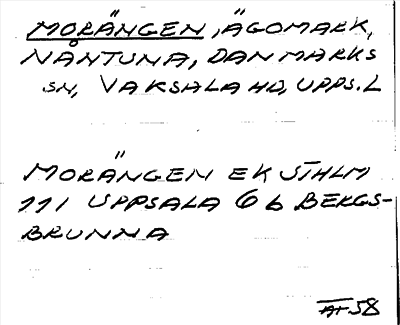 MORÄNGEN, ÄGOMARK,
NÅNTUNA, DANMARKS
SN, VAKSALA HD, UPPS.L
MORÄNGEN EK STHLM
111 UPPSALA 6b BERGS-
BRUNNA
AF 58